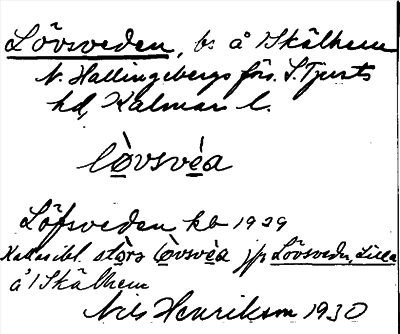 Lövsveden, bs å 1 Skälhem
N. Hallingebergs förs. S. Tjusts
hd, Kalmar l.
lòvsvèa
Löfsveden kb 1929
Kallas ibl. stòra lòvsvèa jfr Lövsveden, Lilla
å 1 Skälhem
Nils Henrikson 1930